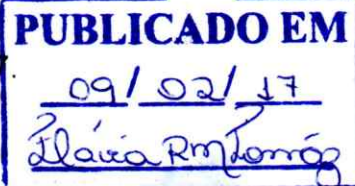 PUBLICADO EM
09/ 02/ 17
Flávia RM